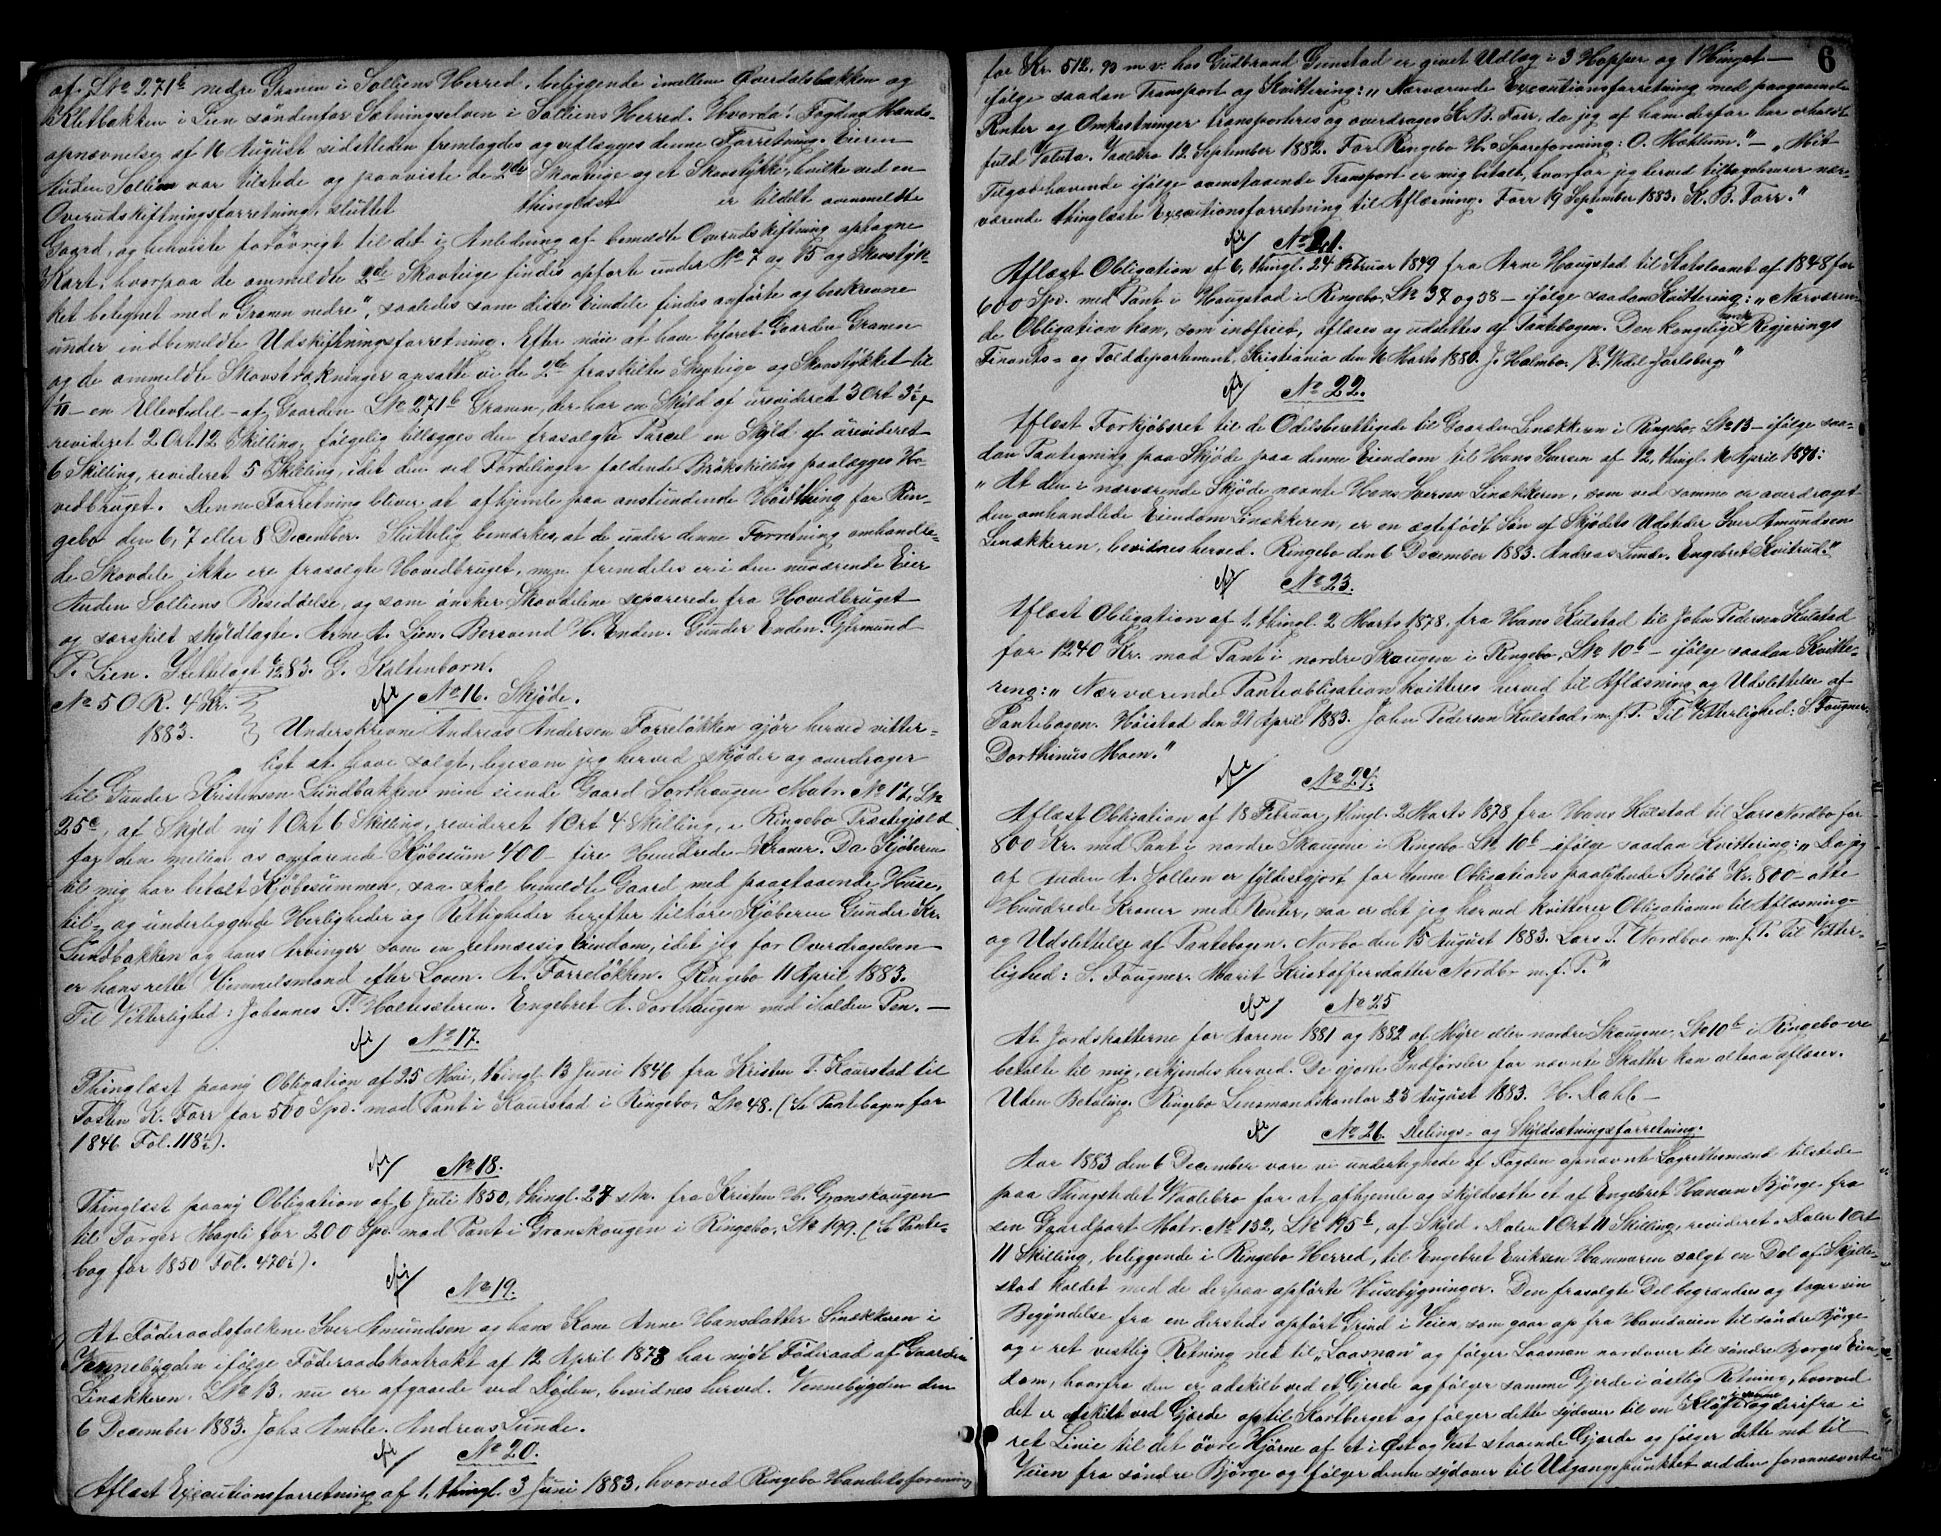 af. LNo 271b nedre Granen i Solliens Herred, beliggende imellem Overdalsbakken og
Kletbakken i Lien søndenfor Sætningselven i Solliens Herred. Hvorda! Fogdens Mands-
opnævnelse af 16 August sidstleden fremlagdes og vedlægges denne Forretning. Eieren
Auden Sollien var tilstede og paaviste de 2de Skovteige og et Skovstykke, hvilke ved en
Overudskiftningsforretning, sluttet thinglæst er tildelt ommeldte
Gaard, og henviste forøvrigt til det i Anledning af bemeldte Overudskiftning optagne
Kart, hvorpaa de ommeldte 2de Skovteige findes opførte under No 7 og 15 og Skovstyk-
ket betegnet med „Granen nedre“, saaledes som disse Eiendele findes anførte og beskrevne
under indbemeldte Udskiftningsforretning. Efter nøie at have beføret Gaarden Granen
og de ommeldte Skovstrækninger ansatte vi de 2de fraskilte Skovteige og Skovstykket til
1/11 – en Ellevtedel – af Gaarden LNo 271b Granen, der har en Skyld af urevideret 3 Ort 3½ β
revideret 2 Ort 12 Skilling, følgelig tillægges den frasolgte Parcel en Skyld af urevideret
6 Skilling, revideret 5 Skilling, idet den ved Fordelingen faldende Brøkskilling paalægges Ho-
vedbruget. Denne Forretning bliver at afhjemle paa anstundende Høstthing for Rin-
gebo den 6, 7 eller 8 December. Sluttelig bemærkes, at de under denne Forretning omhandle-
de Skovdele ikke ere frasolgte Hovedbruget, men fremdeles er i den nuværende Eier
Auden Solliens Besiddelse, og som ønsker Skovdelene separerede fra Hovedbruget
og særskilt skyldlagte. Arne A. Lien. Bersvend H. Enden. Gunder Enden. Gjermund
P. Lien. Grethelagt 6/12 83. G. Kaltenborn.
No 50 R. 4 Kr. cfr No 16. Skjøde.
1883. Underskrevne Andreas Andersen Forreløkken gjør herved vitter-
ligt at have solgt, ligesom jeg herved skjøder og overdrager
til Gunder Kristensen Sundbakken min eiende Gaard Sorthaugen Matr. No 17, LNo
25c, af Skyld ny 1 Ort 6 Skilling, revideret 1 Ort 4 Skilling, i Ringebo Præstegjeld
for den mellem os omforenede Kjøbesum 400 – fire Hundrede – Kroner. Da Kjøberen
til mig har betalt Kjøbesummen, saa skal bemeldte Gaard med paastaaende Huse,
til- og underliggende Herligheder og Rettigheder herefter tilhøre Kjøberen Gunder Kr.
Sundbakken og hans Arvinger som en retmæssig Eiendom, idet jeg for Overdragelsen
er hans rette Hjemmelsmand efter Loven. A. Farreløkken. Ringebo 11 April 1883.
Til Vitterlighed: Johannes P. Holtesæteren. Engebret A. Sorthaugen med iholden Pen. –
cfr No 17.
Thinglæst paany Obligation af 25 Mai, thingl. 13 Juni 1846 fra Kristen T. Kaurstad til
Tosten K. Forr for 500 Spd. mod Pant i Kaurstad i Ringebo, LNo 48. (Se Pantebogen for
1846 Fol. 118).
cfr No 18.
Thinglæst paany Obligation af 6 Juli 1850, thingl. 27 s.M. fra Kristen H. Granskougen
til Torger Hageli for 200 Spd. mod Pant i Granskougen i Ringebo, LNo 199. (Se Pante-
bog for 1850 Fol. 470).
cfr No 19.
At Føderaadsfolkene Iver Amundsen og hans Kone Anne Hansdatter Linækkeren i
Vennebygden ifølge Føderaadskontrakt af 12 April 1873 har nydt Føderaad af Gaarden
Linækkeren. LNo 13, nu ere afgaaede ved Døden, bevidnes herved. Vennebygden den
6 December 1883. Johs Amble. Andreas Lunde.
cfr No 20.
Aflæst Executionsforretning af 1, thingl. 3 Juni 1883, hvorved Ringebo Handelsforening
6
for Kr. 512,90 m.v. hos Gudbrand Gunstad er givet Udlæg i 3 Hopper og 1 Hingst –
ifølge saadan Transport og Kvittering: „Nærværende Executionsforretning med paagaaende
Renter og Omkostninger transporteres og overdrages K. B. Forr, da jeg af ham derfor har erholdt
fuld Valuta. Vaalebro 12 September 1882. For Ringebo H. Spareforening: O. Mehlum.“ – „Mit
Tilgodehavende ifølge ovenstaaende Transport er mig betalt, hvorfor jeg herved tilbageleverer nær-
værende thinglæste Executionsforretning til Aflæsning. Forr 19 September 1883. K. B. Forr.“
cfr No 21.
Aflæst Obligation af 6, thingl. 24 Februar 1849 fra Arne Haugstad til Statslaanet af 1848 for
600 Spd. med Pant i Haugstad i Ringebo, LNo 37 og 38 – ifølge saadan Kvittering: „Nærværen-
de Obligation kan, som indfriet, aflæses og udslettes af Pantebogen. Den kongelige norske Regjerings
Finants- og Tolddepartement, Kristiania den 16 Marts 1880. J. Holmbo. / E. Wedel-Jarlsberg“
cfr No 22.
Aflæst Forkjøbsret til de Odelsberettigede til Gaarden Linækkeren i Ringebo, LNo 13 – ifølge saa-
dan Paategning paa Skjøde paa denne Eiendom til Hans Iversen af 12, thingl. 16 April 1871:
„At den i nærværende Skjøde nævnte Hans Iversen Linækkeren, som ved samme er overdraget
den omhandlede Eiendom Linækkeren, er en ægtefødt Søn af Skjødets Udsteder Iver Amundsen
Linækkeren, bevidnes herved. Ringebo den 6 December 1883. Andreas Lunde. Engebret Kvitrud.“
cfr No 23.
Aflæst Obligation af 1, thingl. 2 Marts 1878, fra Hans Kulstad til John Pedersen Kulstad
for 1240 Kr. mod Pant i nordre Skaugene i Ringebo, LNo 10b – ifølge saadan Kvitte-
ring: „Nærværende Panteobligation kvitteres herved til Aflæsning og Udslettelse af
Pantebogen. Høistad den 21 April 1883. John Pedersen Kulstad. m.f.P. Til Vitterlighed: S. Fougner.
Dorthinus Moen.“
cfr No 24.
Aflæst Obligation af 18 Februar, thingl. 2 Marts 1878 fra Hans Kulstad til Lars Nordbo for
800 Kr. med Pant i nordre Skaugene i Ringebo LNo 10b – ifølge saadan Kvittering: „Da jeg
af Auden A. Sollien er fyldestgjort for denne Obligations paalydende Beløb Kr. 800 – otte
Hundrede Kroner med Renter, saa er det jeg herved kvitterer Obligationen til Aflæsning
og Udslettelse af Pantebogen. Norbo den 15 August 1883. Lars T. Nordboe m.f.P. Til Vitter-
lighed: S. Fougner. Marit Kristoffersdatter Nordbo m.f.P.“
cfr No 25
At Jordskatterne for Aarene 1881 og 1882 af Myre eller nordre Skaugene, LNo 10b i Ringebo ere
betalte til mig, erkjendes herved. De gjorte Indførsler for nævnte Skatter kan altsaa aflæses.
Uden Betaling. Ringebo Lensmandskontor 23 August 1883. H. Dahl –
cfr No 26. Delings- og Skyldsætningsforretning.
Aar 1883 den 6 December vare vi undertegnede af Fogden opnævnte Lagrettesmænd tilstede
paa Thingstedet Vaalebro for at afhjemle og skyldsætte et af Engebret Hansen Bjørge fra
sin Gaardpart Matr. No 152, LNo 195b, af Skyld „ Daler 1 Ort 11 Skilling, revideret „ Daler 1 Ort
11 Skilling, beliggende i Ringebo Herred, til Engebret Eriksen Hammaren solgt en Del af Skjelle-
stad kaldet med de derpaa opførte Husebygninger. Den frasolgte Del begrændses og tager sin
Begyndelse fra en dersteds opført Grind i Veien, som gaar op fra Hovedveien til søndre Bjørge
og i ret vestlig Retning ned til „Laagen“ og følger Laagen nordover til søndre Bjørges Eien-
dom, hvorfra den er adskilt ved et Gjerde og følger samme Gjerde i østlig Retning, hvorved
det er adskilt ved Gjerde op til Kortberget og følger dette sydover til en Kløft i samme og derifra i
ret Linie til det øvre Hjørne af et i Øst og Vest staaende Gjerde og følger dette ned til
Veien fra søndre Bjørge og følger denne sydover til Udgangspunktet ved den forannævnte